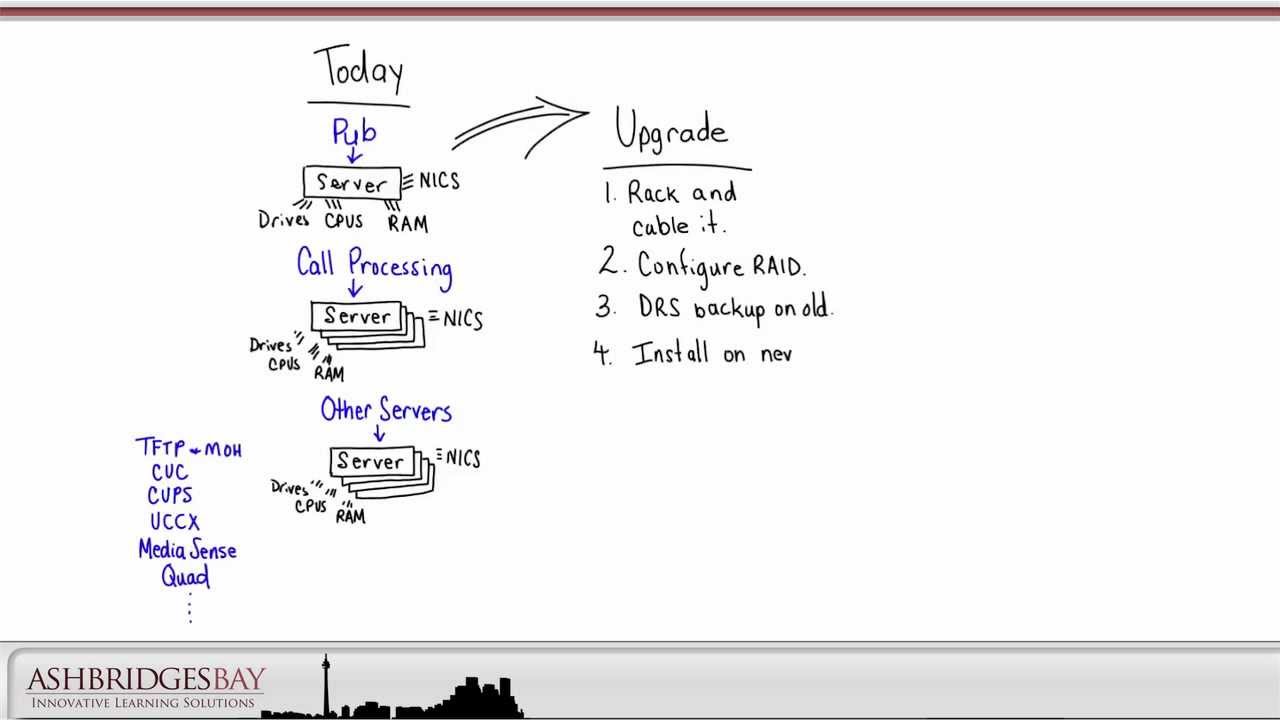 Today
Pub
Server
NICS
Drives CPUS RAM
Call Processing
Server
NICS
Drives
CPUS
RAM
Other Servers
Server
NICS
Drives
CPUS
RAM
TFTP & MOH
CUC
CUPS
UCCX
Media Sense
Quad
Upgrade
1. Rack and
cable it.
2. Configure RAID.
3. DRS backup on old.
4. Install on nev
ASHBRIDGESBAY
INNOVATIVE LEARNING SOLUTIONS